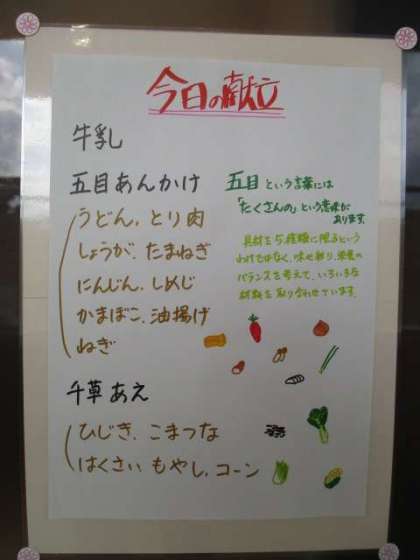 今日の献立
牛乳
五目あんかけ
うどん、とり肉
しょうが、たまねぎ
にんじん、しめじ
かまぼこ、油揚げ
ねぎ
五目という言葉には
「たくさんの」という意味が
あります。
具材を5種類に限るという
わけではなく、味や彩り、栄養の
バランスを考えて、いろいろな
材料を取り合わせています。
千草あえ
ひじき、こまつな
はくさい もやし、コーン